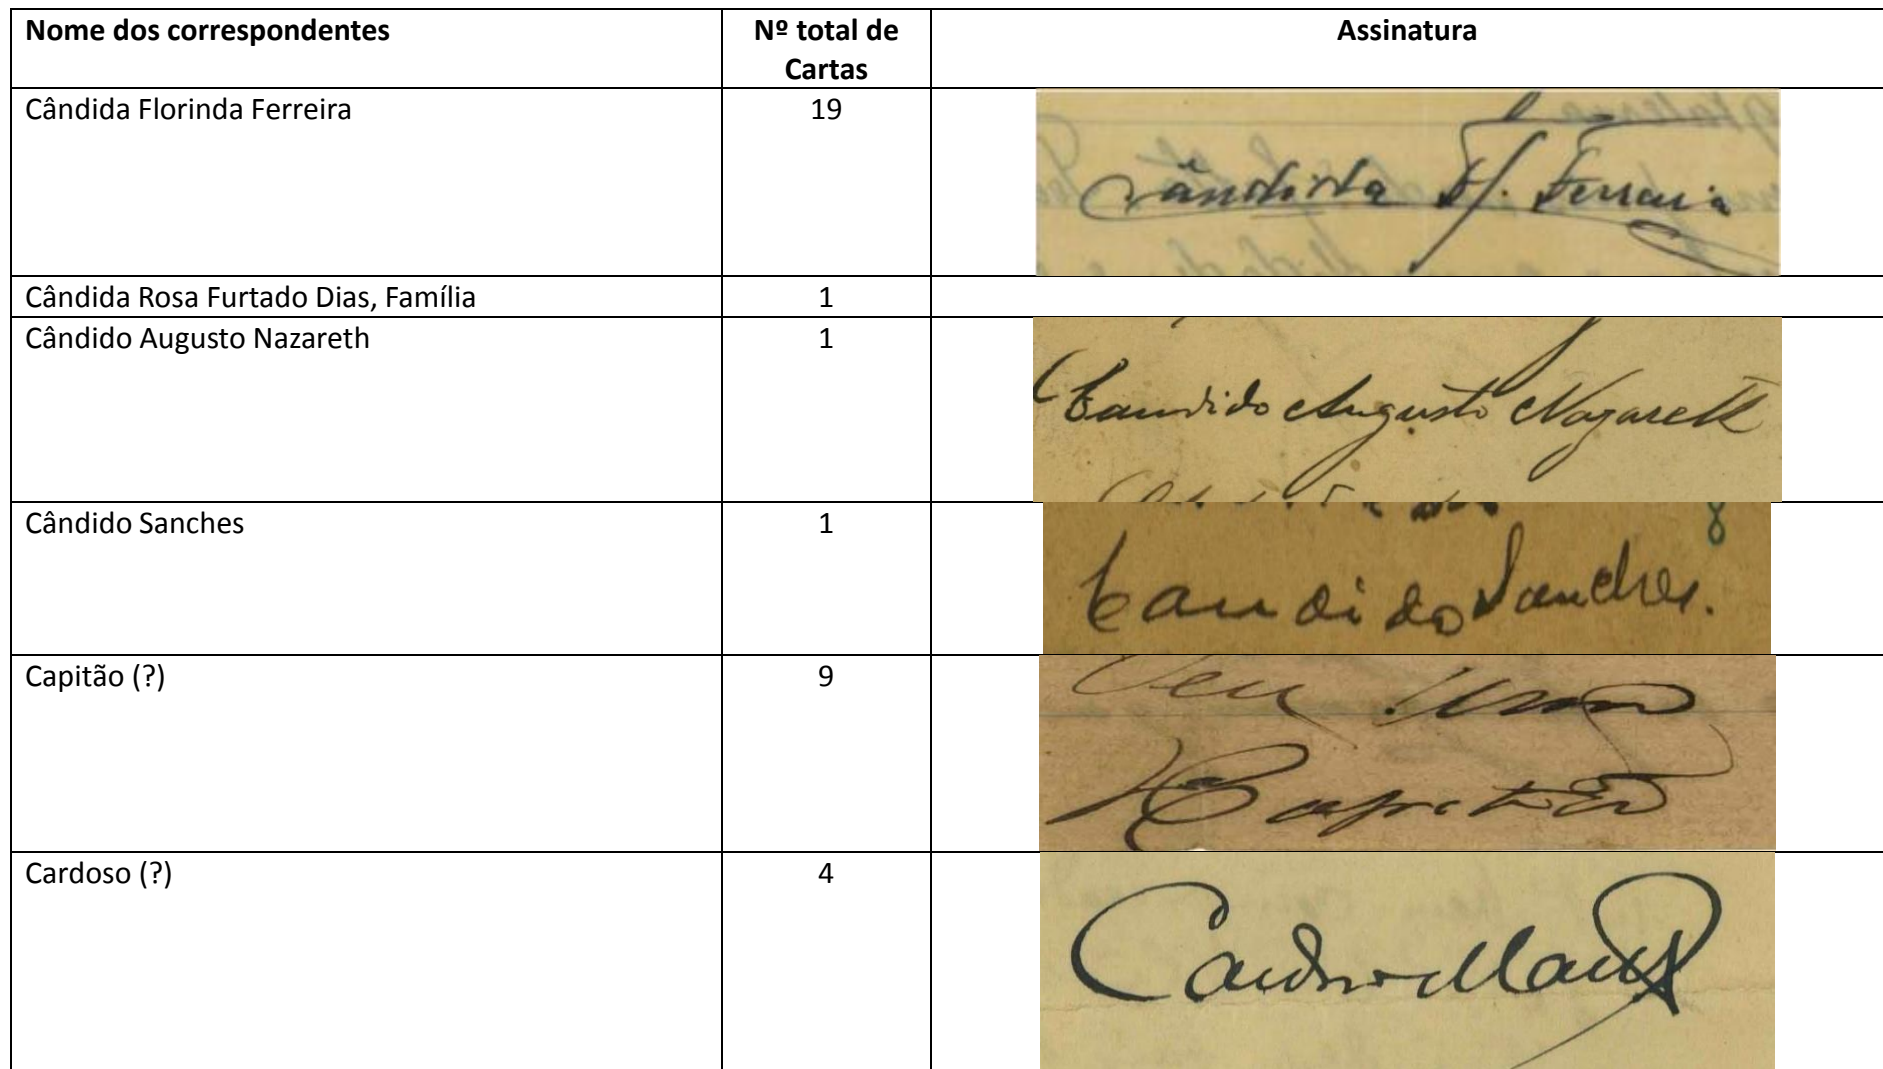 Nome dos correspondentes
Nº total de
Cartas
Assinatura
Cândida Florinda Ferreira
19
Cândida F. Ferreira
Cândida Rosa Furtado Dias, Família
1
Cândido Augusto Nazareth
1
Candido Augusto Nazareth
Cândido Sanches
1
Candido Sanches.
Capitão (?)
9
Capitão
Cardoso (?)
4
Cardoso